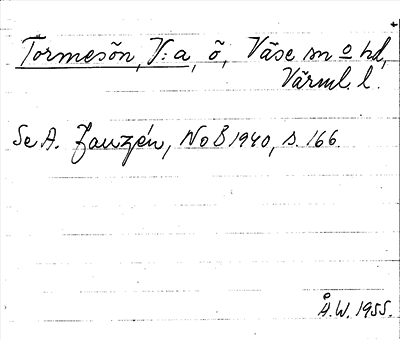 Tormesön, V:a, ö, Väse sn o hd,
Värml. l.
Se A. Janzén, NoB 1940, s. 166.
Å.W. 1955.